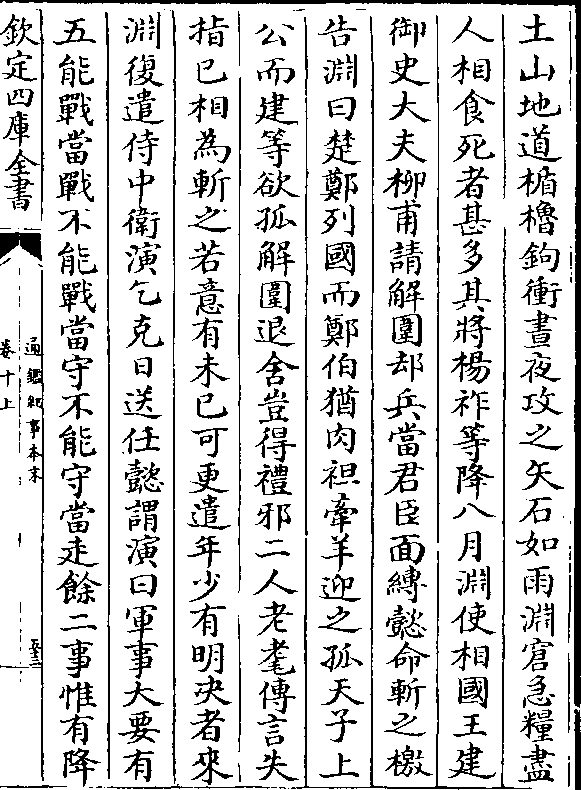 土山地道楯櫓鉤衝晝夜攻之矢石如雨淵窘急糧盡
人相食死者甚多其將楊祚等降八月淵使相國王建
御史大夫柳甫請解圍却兵當君臣面縛懿命斬之檄
告淵曰楚鄭列國而鄭伯猶肉袒牽羊迎之孤天子上
公而建等欲孤解圍退舍豈得禮邪二人老耄傳言失
指已相為斬之若意有未已可更遣年少有明决者來
淵復遣侍中衛演乞克日送任懿謂演曰軍事大要有
五能戰當戰不能戰當守不能守當走餘二事惟有降
欽定四庫全書
通鑑紀事本末
卷十上